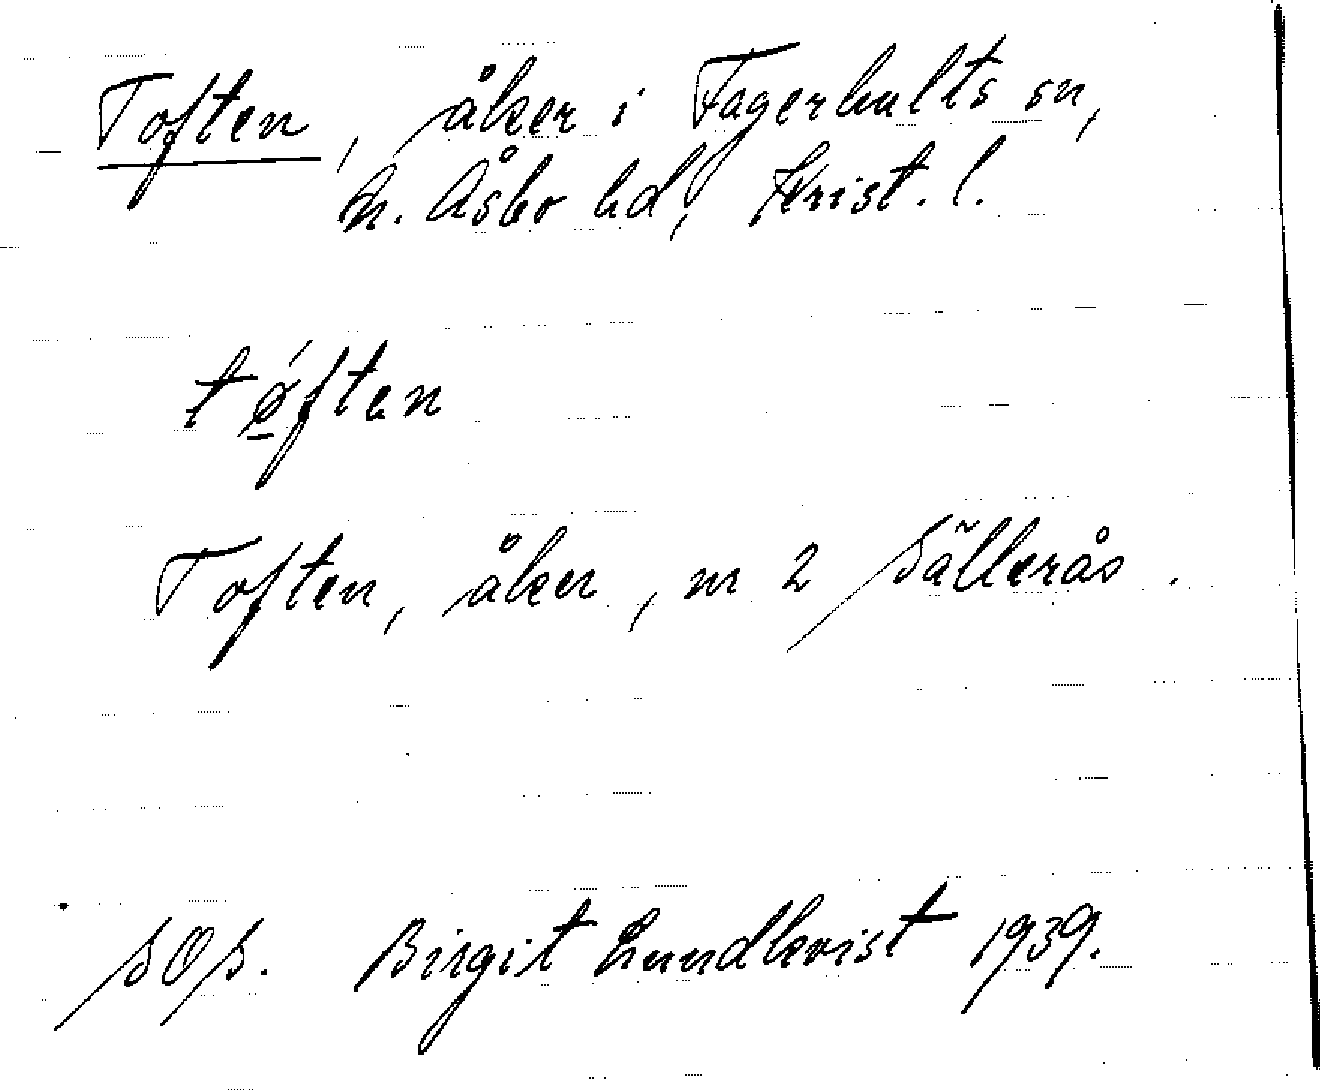 Toften, åker i Fagerhults sn,
N. Åsbo hd, Krist. l.
tǿften
Toften, åker, nr 2 Sällerås.
SOS. Birgit Lundkvist 1939.